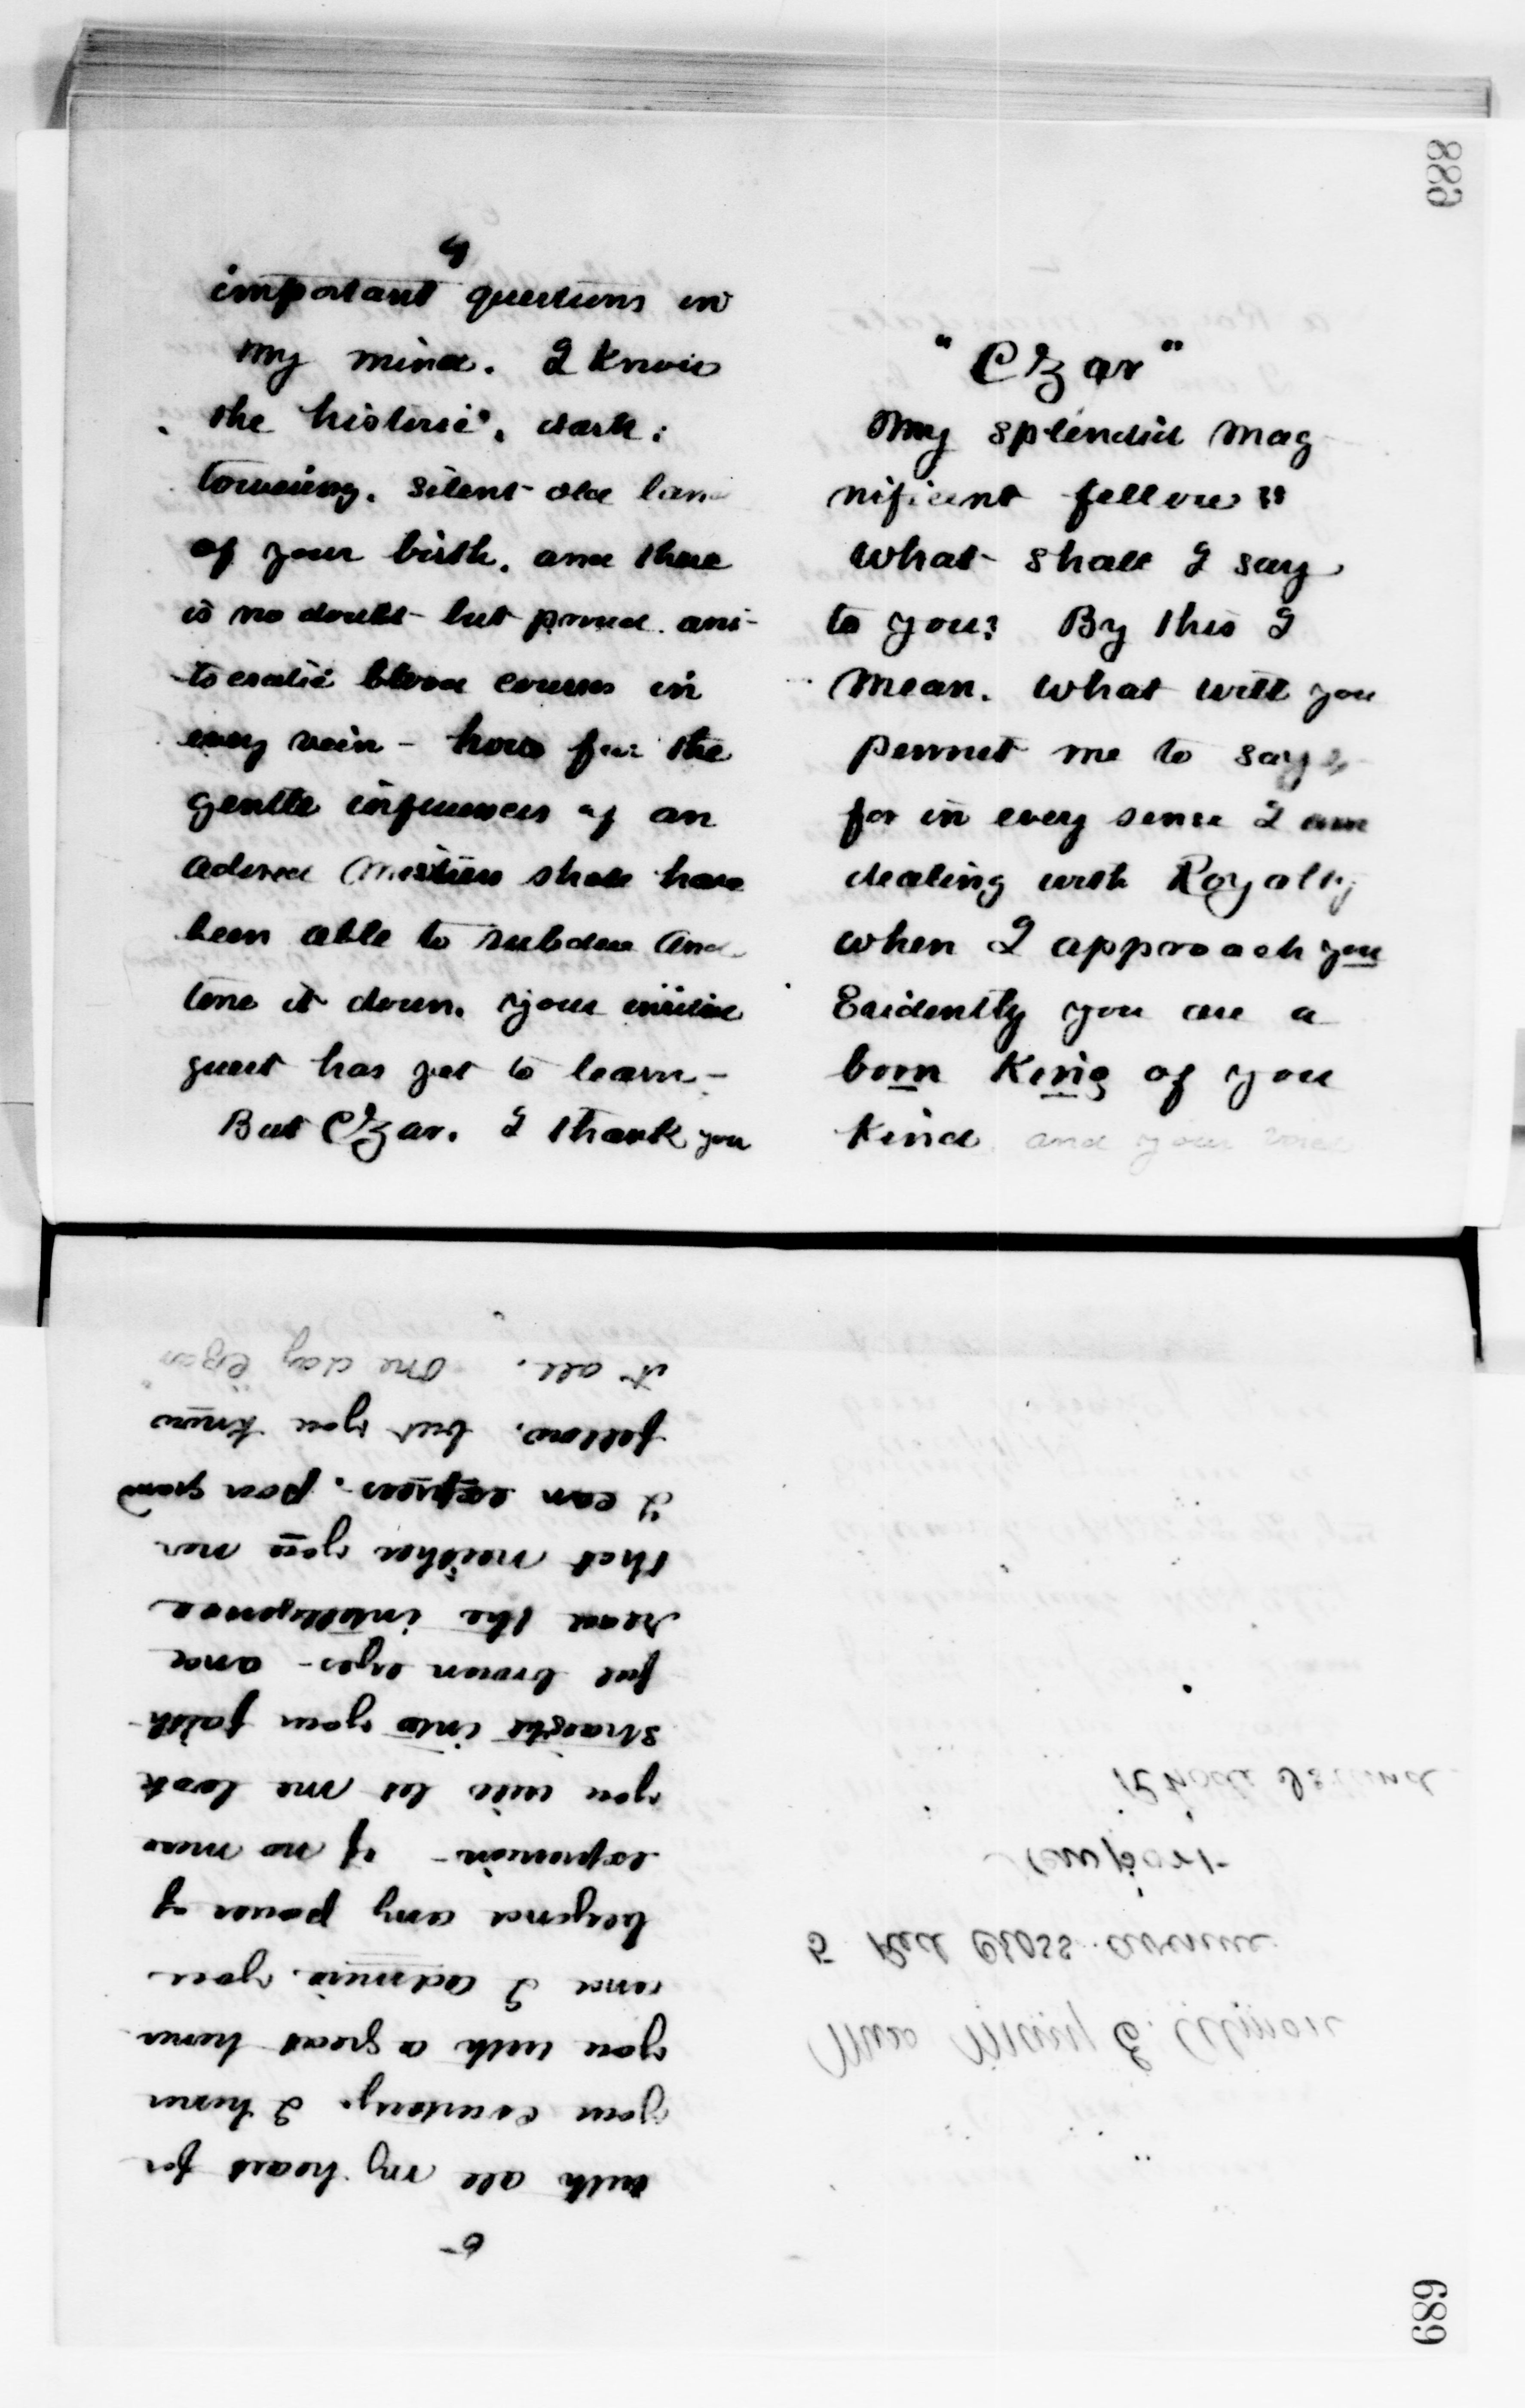 688
4
important questions in
my mind. I know
the historic, dark,
towering, silent old land
of your birth, and there
is no doubt but proud aris-
tocratic blood courses in
every vein - how far the
gentle influences of an
adored Mistress shall have
been able to subdue and
tone it down, your
guest has yet to learn -
But Czar, I thank you
"Czar"
My splendid mag
nificent fellow!!
What shall I say
to you? By this I
mean, what will you
permit me to say,
for in every sense I am
dealing with Royalty
when I approach you
Evidently you are a
born King of you
kind and your
5
with all my heart for
your courtesy. I honor
you with a great honor
and I admire you
beyond any power of
expression - if no more
you will let me look
straight into your faith-
ful brown eyes - and
read the intelligence
that neither you nor
I can express, poor grand
fellow, but you know
it all. One day Czar
Miss Mary E. Almon
5 Red Cross Avenue
Newport
Rhode Island
689